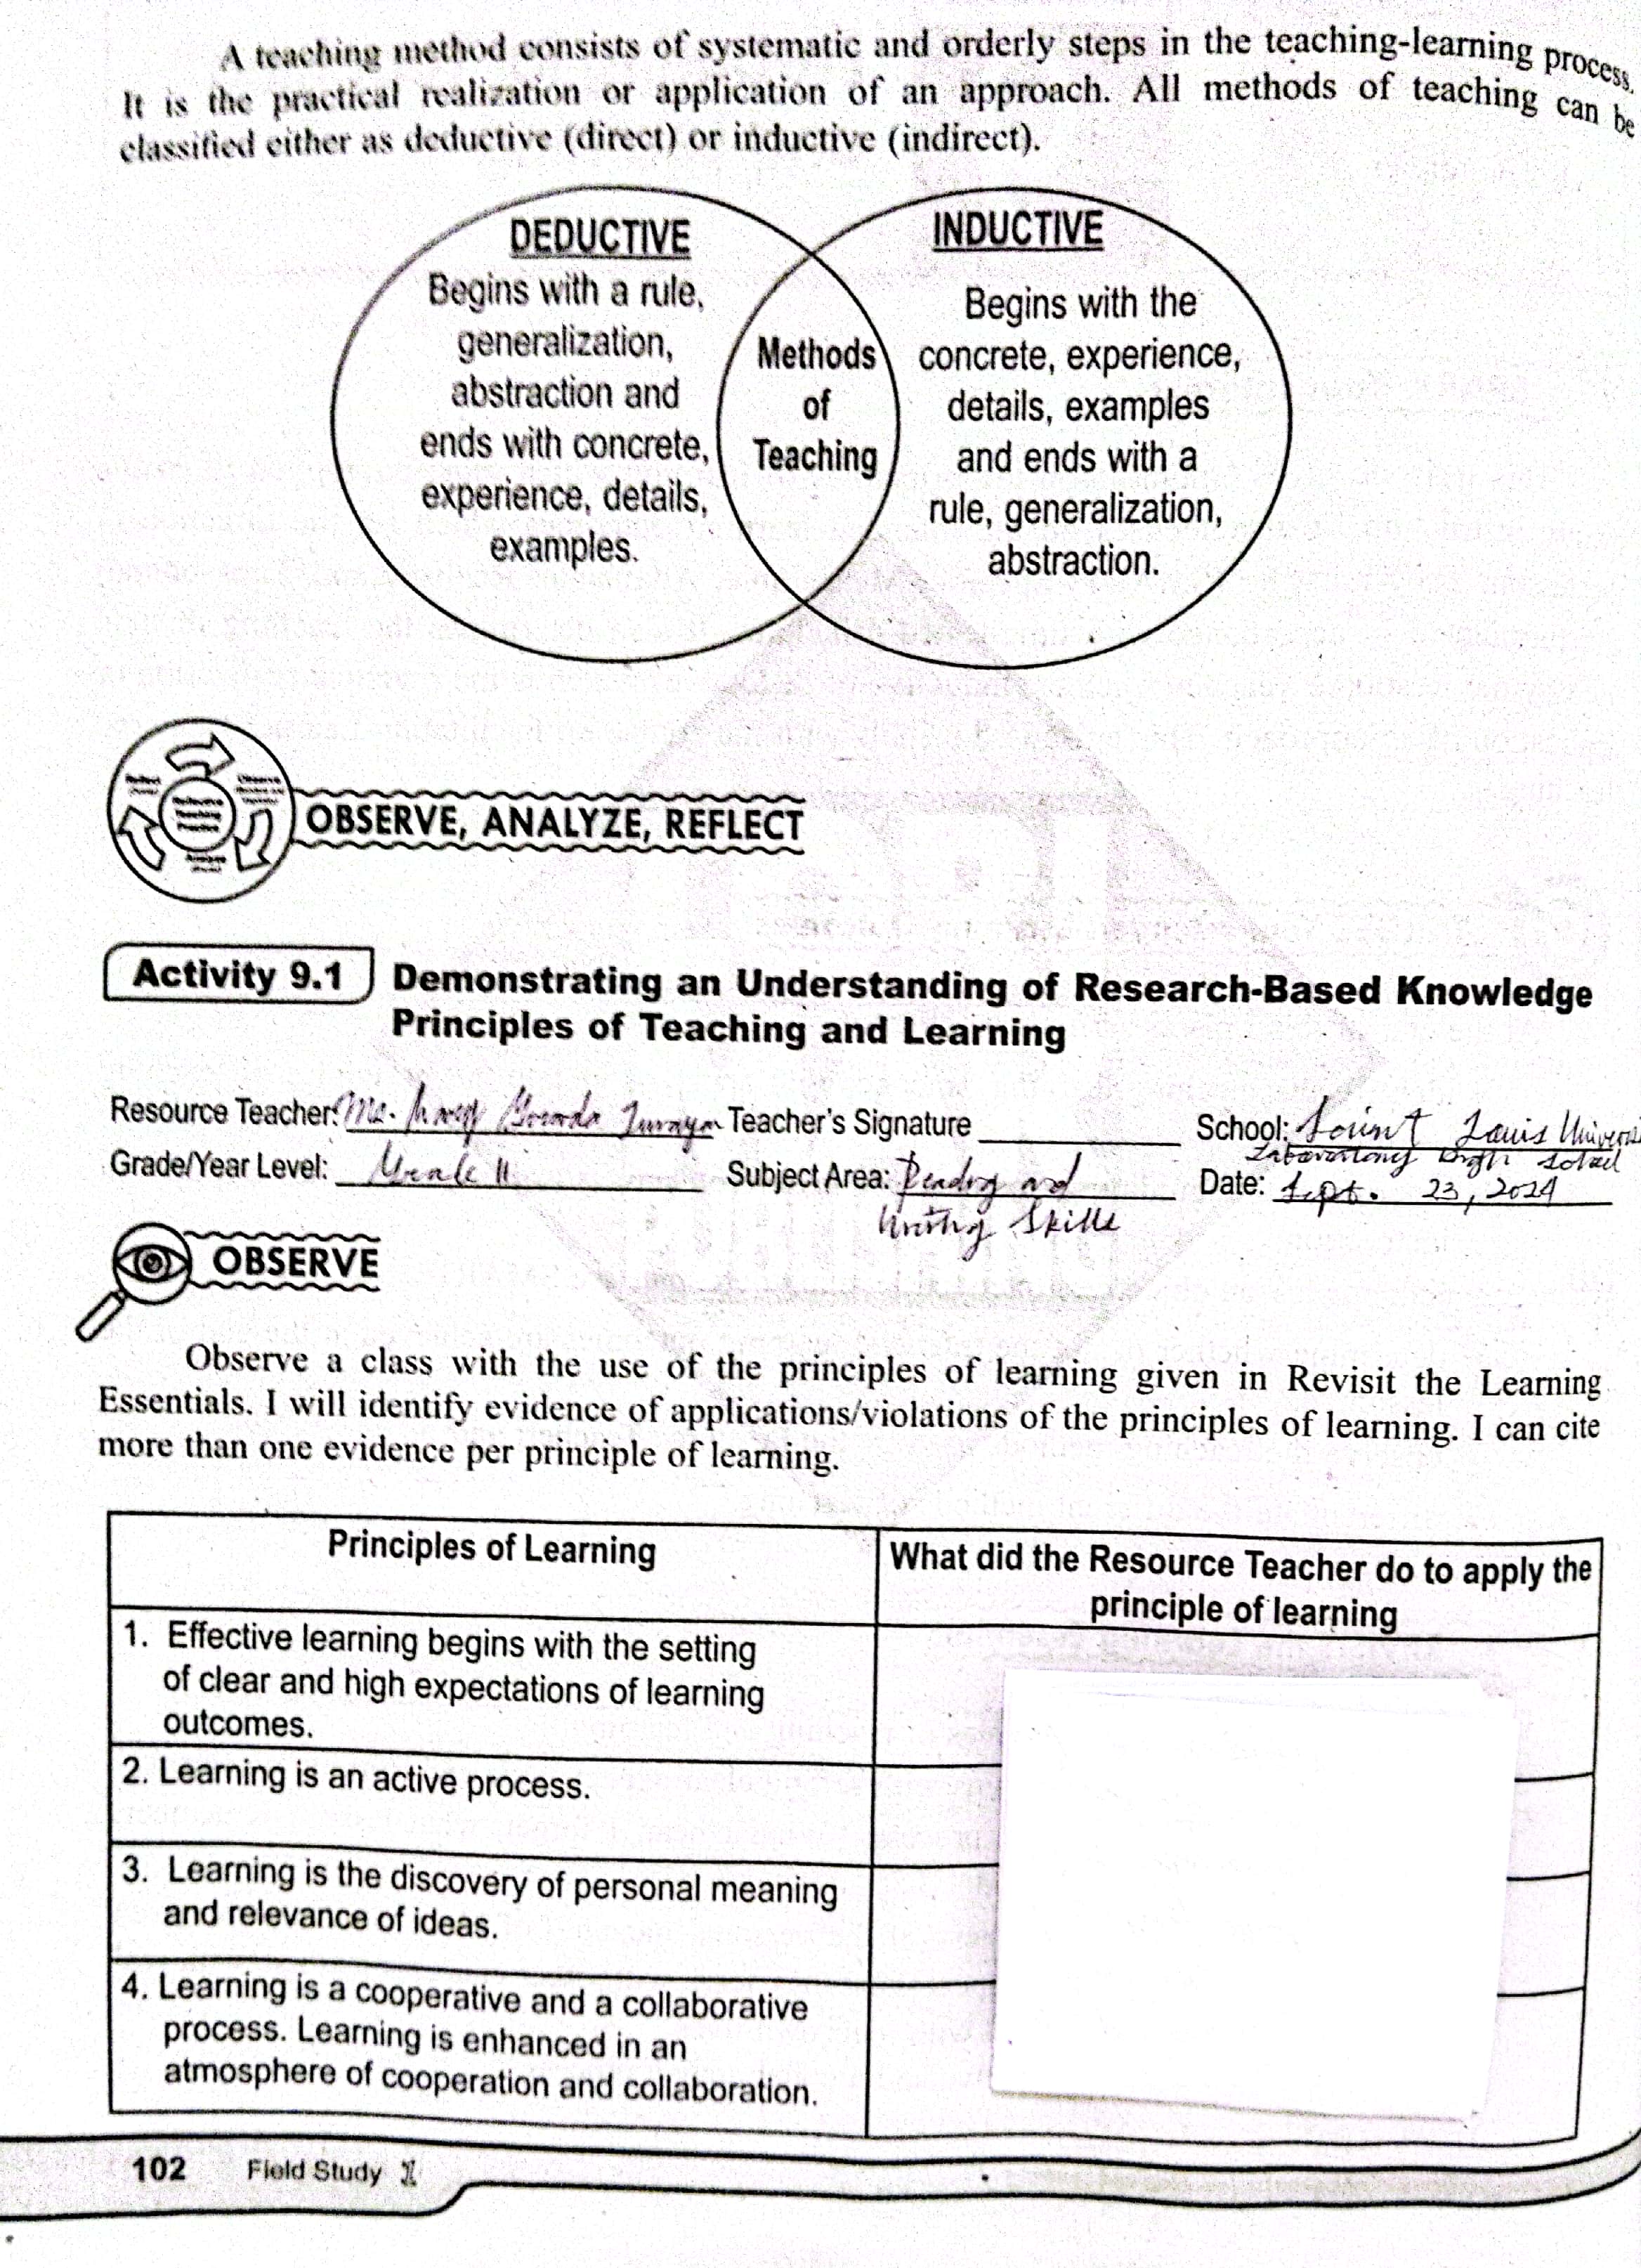 A teaching method consists of systematic and orderly steps in the teaching-learning process.
It is the practical realization or application of an approach. All methods of teaching can be
classified either as deductive (direct) or inductive (indirect).
DEDUCTIVE
Begins with a rule,
generalization,
abstraction and
ends with concrete,
experience, details,
examples.
Methods
of
Teaching
INDUCTIVE
Begins with the
concrete, experience,
details, examples
and ends with a
rule, generalization,
abstraction.
Reflect
Observe
Reflective
Teaching
OBSERVE, ANALYZE, REFLECT
Activity 9.1 Demonstrating an Understanding of Research-Based Knowledge
Principles of Teaching and Learning
Resource Teacher: Ms. Teacher's Signature School: Saint Louis
Laboratory High School
Grade/Year Level: Grade 11 Subject Area: Reading and Date: Sept. 23, 2024
Writing Skills
OBSERVE
Observe a class with the use of the principles of learning given in Revisit the Learning
Essentials. I will identify evidence of applications/violations of the principles of learning. I can cite
more than one evidence per principle of learning.
Principles of Learning
What did the Resource Teacher do to apply the
principle of learning
1. Effective learning begins with the setting
of clear and high expectations of learning
outcomes.
2. Learning is an active process.
3. Learning is the discovery of personal meaning
and relevance of ideas.
4. Learning is a cooperative and a collaborative
process. Learning is enhanced in an
atmosphere of cooperation and collaboration.
102 Field Study